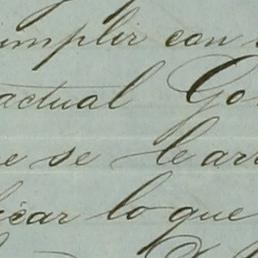 umplir con
actual Go
e se le arr
icar lo que